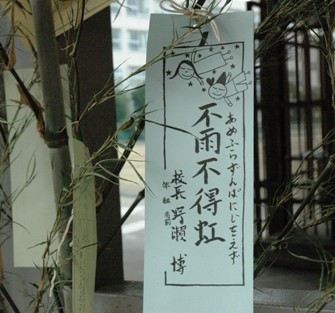 あめふらずんばにじをえず
不雨不得虹
校長 野瀬 博